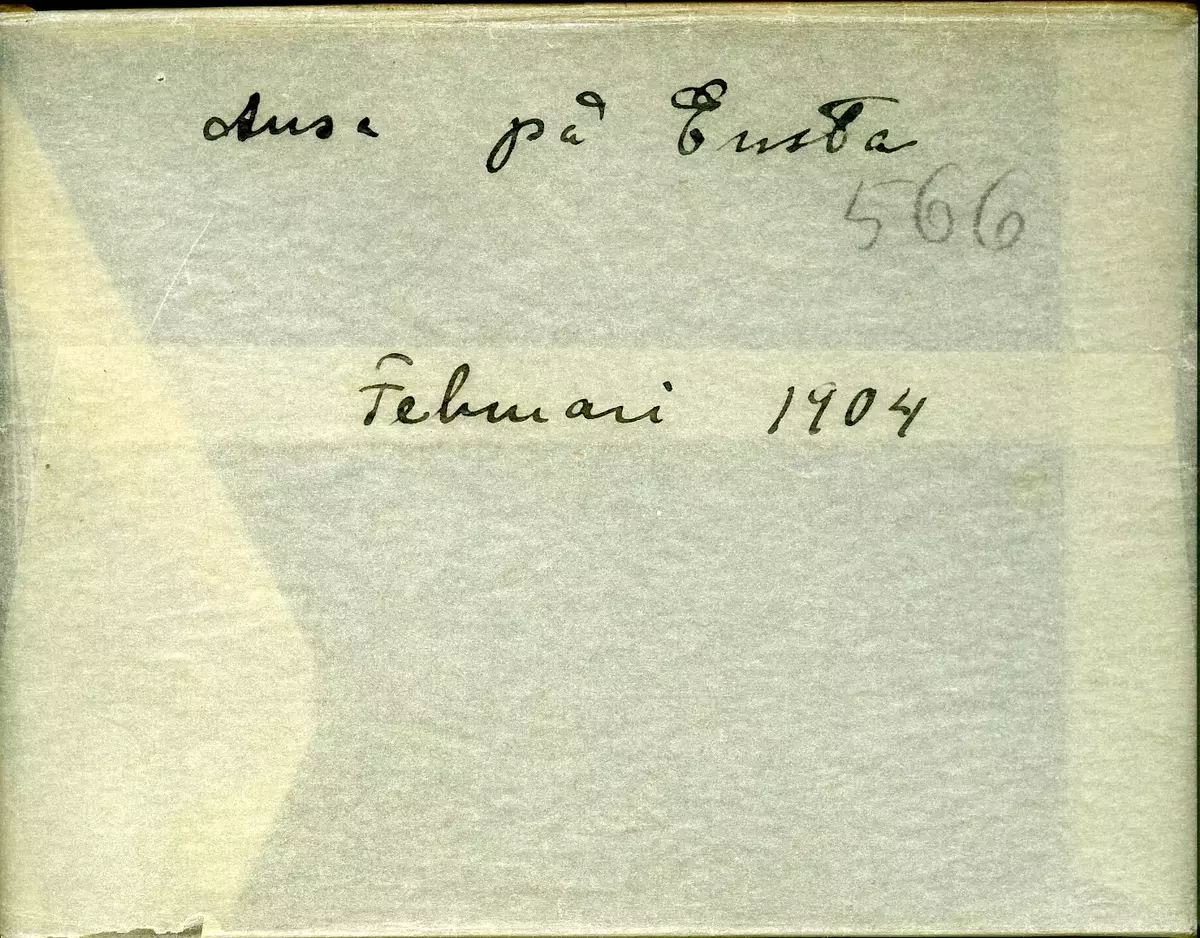 Ausa på Ensta
566
Februari 1904